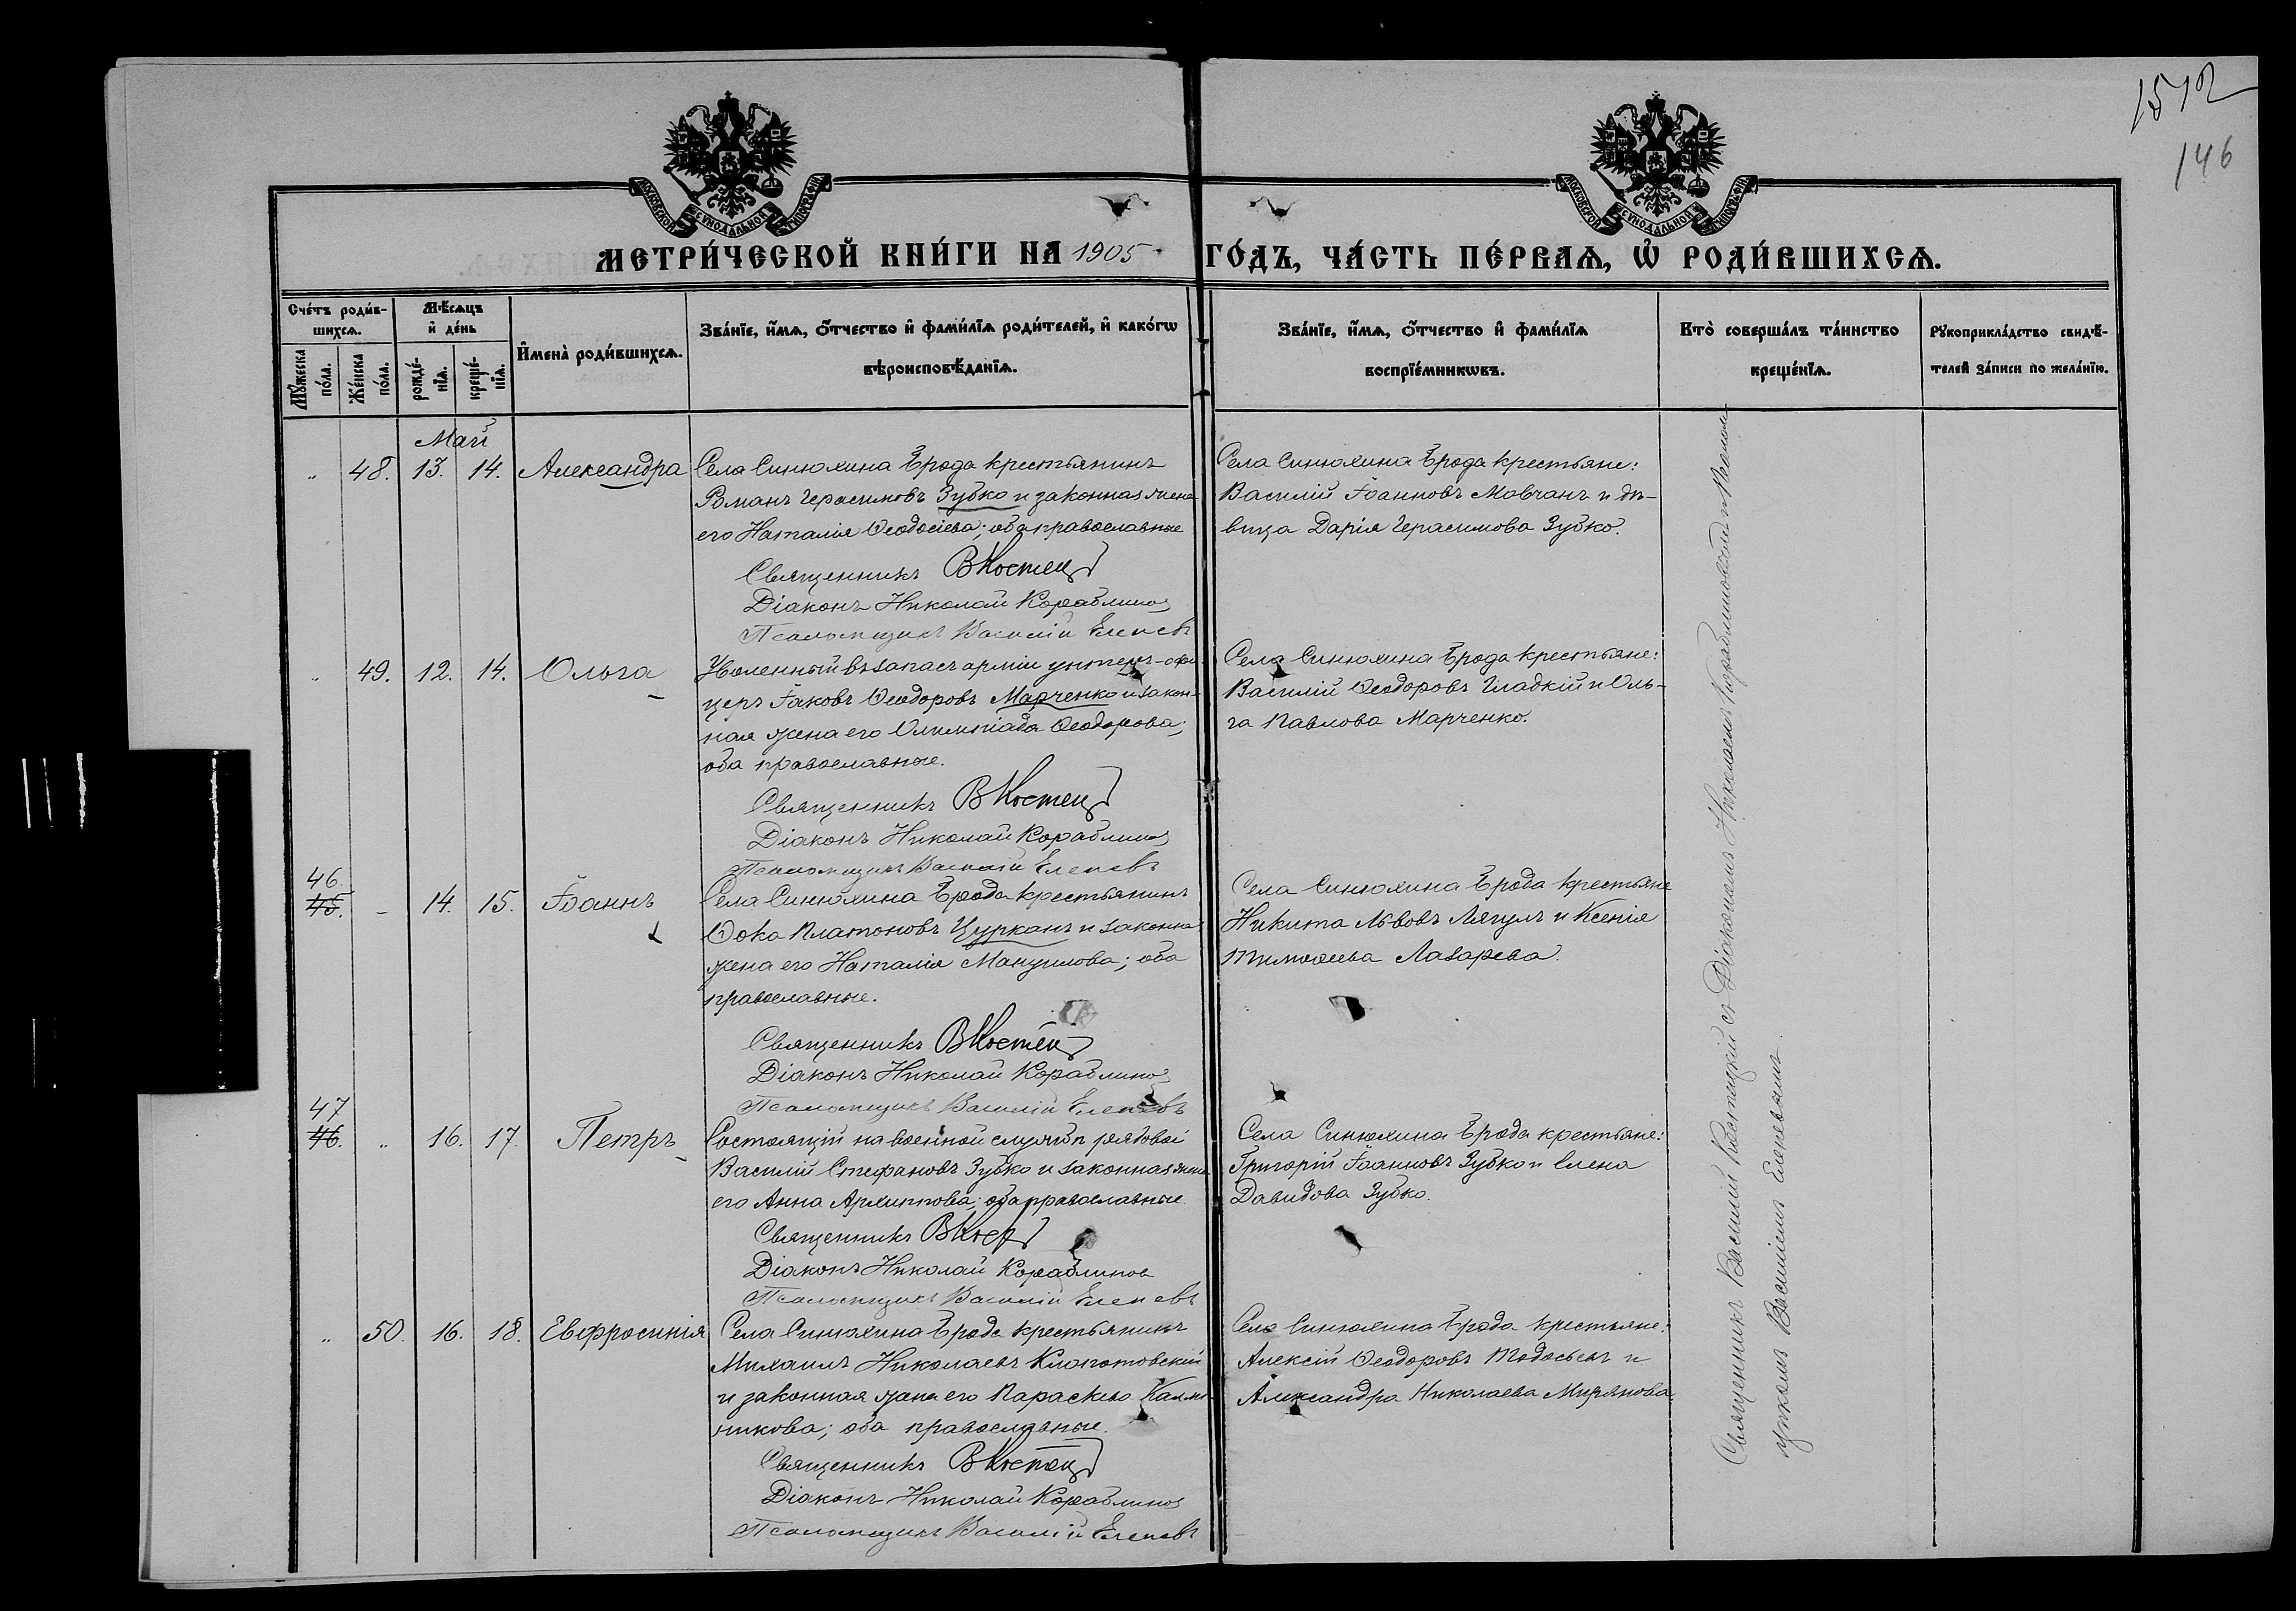 1512
146
МОСКОВСКОЙ СѴНОДАЛЬНОЙ ТИПОГРАФІИ
МОСКОВСКОЙ СѴНОДАЛЬНОЙ ТИПОГРАФІИ
МЕТРИ́ЧЕСКОЙ КНИ́ГИ НА 1905 ГО́ДЪ, ЧА́СТЬ ПЕ́РВАѦ, Ѡ҆ РОДИ́ВШИХСѦ.
Сче́тъ роди́в-
шихсѧ.
Мꙋ́жеска по́ла.
Же́нска по́ла.
Мѣ́сѧцъ
и҆ де́нь
рожде́-
нїѧ.
креще́-
нїѧ.
И҆мена̀ роди́вшихсѧ.
Зва́нїе, и҆́мѧ, ѻ҆́тчество и҆ фами́лїѧ роди́телей, и҆ како́гѡ
вѣроисповѣ́данїѧ.
Зва́нїе, и҆́мѧ, ѻ҆́тчество и҆ фами́лїѧ
воспрїе́мникѡвъ.
Кто̀ соверша́лъ та́инство
креще́нїѧ.
Рꙋкоприкла́дство свидѣ́-
телей за́писи по жела́нїю.
Май
" 48. 13. 14. Александра
Села Синюхина Брода крестьянинъ
Романъ Герасимовъ Зубко и законная жена
его Наталія Ѳеодосіева; оба православные
Священникъ В Костец
Діаконъ Николай Кораблинов
Псаломщикъ Василій Елепевъ
Села Синюхина Брода крестьяне:
Василій Іоанновъ Мовчанъ и дѣ-
вица Дарія Герасимова Зубко.
" 49. 12. 14. Ольга
Уволенный въ запасъ арміи унтеръ-офи-
церъ Іаковъ Ѳеодоровъ Марченко и закон-
ная жена его Олимпіада Ѳеодорова;
оба православные.
Священникъ В Костец
Діаконъ Николай Кораблинов
Псаломщикъ Василій Елепевъ
Села Синюхина Брода крестьяне:
Василій Ѳеодоровъ Гладкій и Оль-
га Павлова Марченко.
46.
45. - 14. 15. Іоаннъ
Села Синюхина Брода крестьянинъ
Ѳока Платоновъ Цурканъ и законна
жена его Наталія Мануилова; оба
православные.
Священникъ В Костец
Діаконъ Николай Кораблинов
Псаломщикъ Василій Елепевъ
Села Синюхина Брода крестьяне
Никита Львовъ Лягулъ и Ксенія
Тимоѳеева Лазарева.
47
46. " 16. 17. Петръ
Состоящій на военной службѣ рядовой
Василій Стефановъ Зубко и законная жена
его Анна Архиппова; оба православные.
Священникъ В Кост
Діаконъ Николай Кораблинов
Псаломщикъ Василій Елепевъ
Села Синюхина Брода крестьяне:
Григорій Іоанновъ Зубко и Елена
Давидова Зубко.
" 50. 16. 18. Евфросинія
Села Синюхина Брода крестьянинъ
Михаилъ Николаевъ Клопотовскій
и законная жена его Параскева Калли-
никова; оба православные.
Священникъ В Костец
Діаконъ Николай Кораблинов
Псаломщикъ Василій Елепевъ
Села Синюхина Брода крестьяне:
Алексій Ѳеодоровъ Тодосьевъ и
Александра Николаева Мирянова.
Священникъ Василій Костецкій съ Діакономъ Николаемъ Кораблиновымъ и Псалом-
щикомъ Василіемъ Елепевымъ.